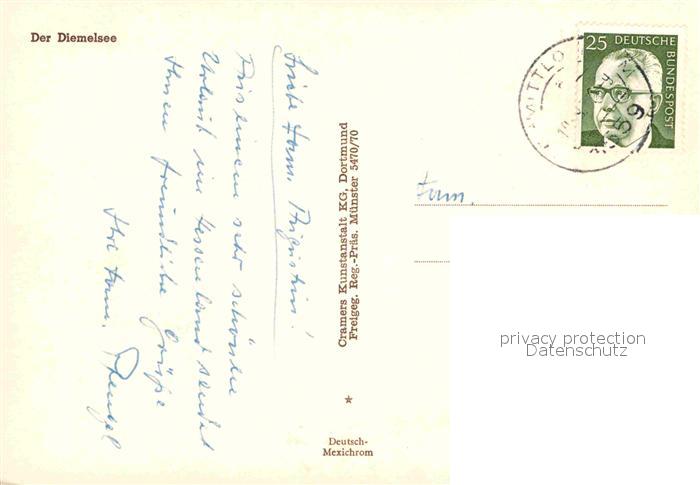 Der Diemelsee
Liebe Fam. Augustin!
Aus einem sehr schönen
Urlaub im Hessenland sendet
Ihnen freundliche Grüße
Ihre Fam.
Cramers Kunstanstalt KG, Dortmund
Freigeg. Reg.-Präs. Münster 5470/70
Deutsch-
Mexichrom
25 DEUTSCHE
BUNDESPOST
Fam.
privacy protection
Datenschutz